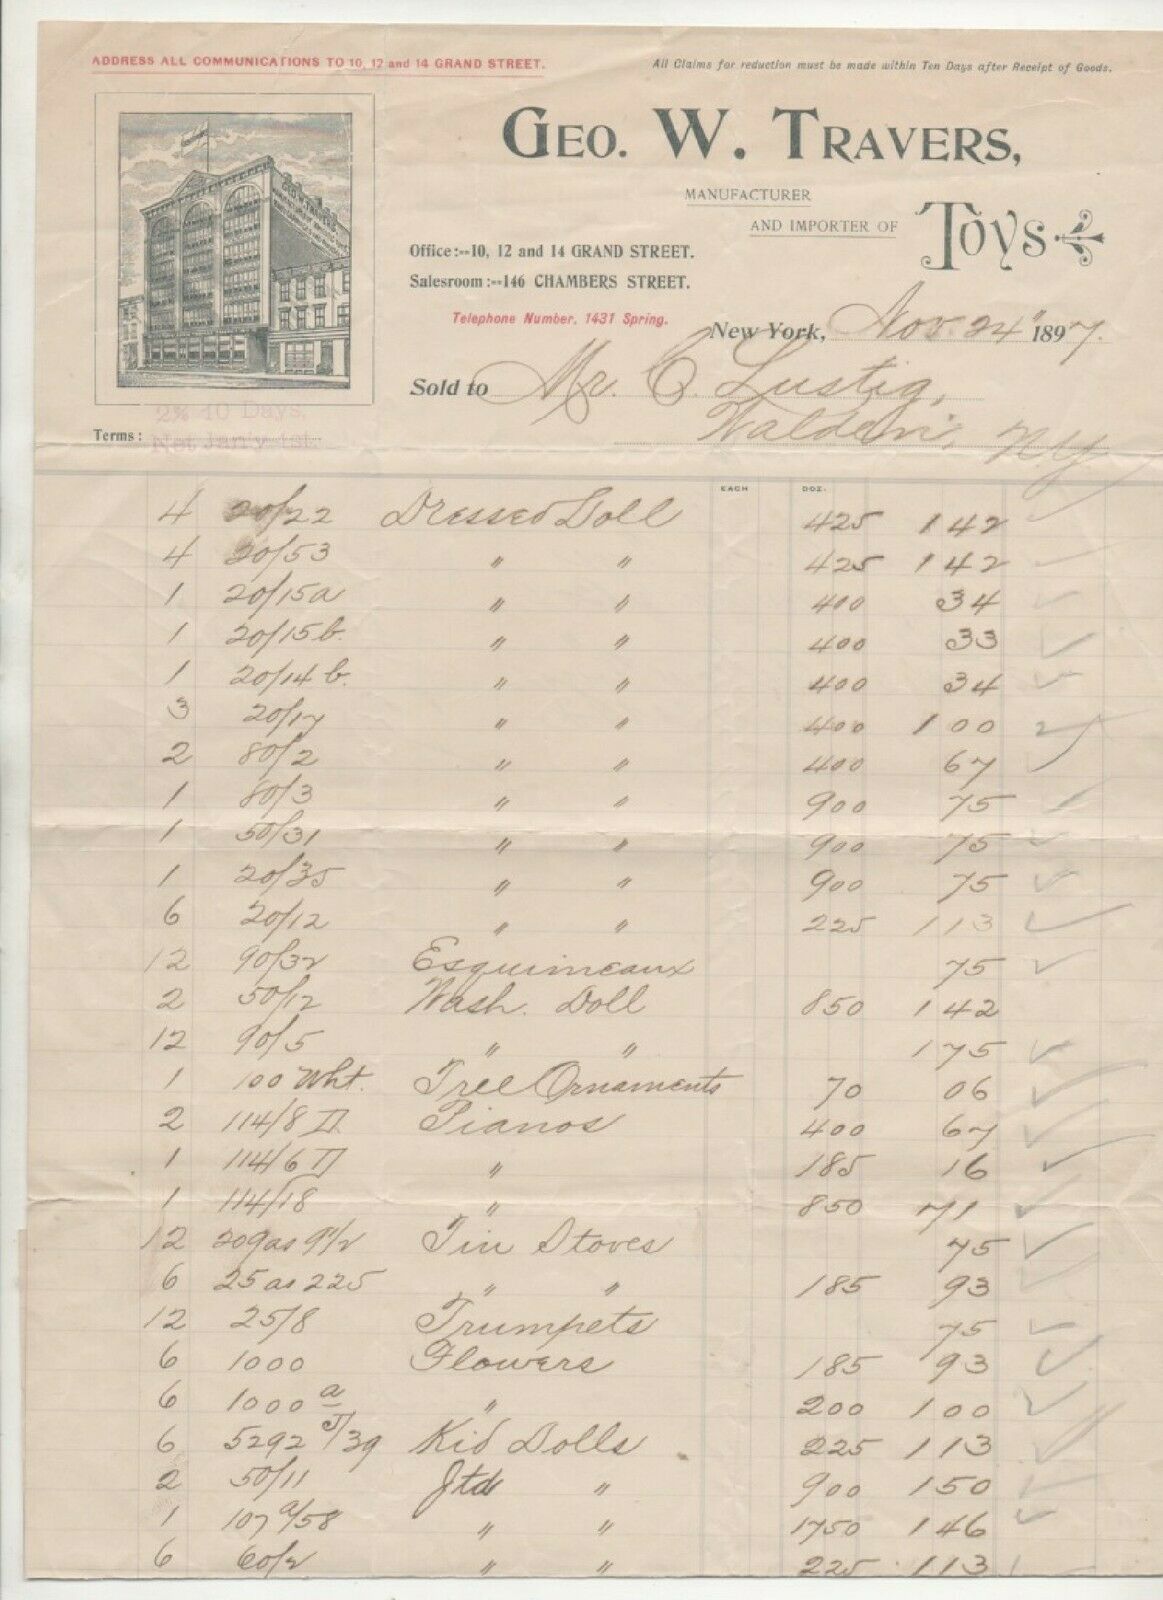 ADDRESS ALL COMMUNICATIONS TO 10, 12 and 14 GRAND STREET.
All Claims for reduction must be made within Ten Days after Receipt of Goods.
GEO. W. TRAVERS,
MANUFACTURER
AND IMPORTER OF Toys
Office:--10, 12 and 14 GRAND STREET.
Salesroom:--146 CHAMBERS STREET.
Telephone Number, 1431 Spring.
New York, Nov. 24" 1897.
Sold to Mr. C. Lustig,
Walden, NY
2% 10 Days.
Terms: Net Jan'y 1st.
EACH DOZ.
4 20/22 Dressed Doll 425 1 42
4 20/53 " " 425 1 42
1 20/15a " " 400 34
1 20/15b. " " 400 33
1 20/14 b. " " 400 34
3 20/17 " " 400 1 00
2 80/2 " " 400 67
1 80/3 " " 900 75
1 50/31 " " 900 75
1 20/35 " " 900 75
6 20/12 " " 225 1 13
12 90/32 Esquimeaux 75
2 50/12 Wash. Doll 850 1 42
12 90/5 " " 1 75
1 100 Wht. Tree Ornaments 70 06
2 114/8 II Pianos 400 67
1 114/6 II " 185 16
1 114/18 " 850 71
12 209as 9½ Tin Stoves 75
6 25 as 225 " " 185 93
12 25/8 Trumpets 75
6 1000 Flowers 185 93
6 1000 a " 200 1 00
6 5292 J/39 Kid Dolls 225 1 13
2 50/11 Jtd " 900 1 50
1 107 a/58 " " 1750 1 46
6 60/2 " " 225 1 13